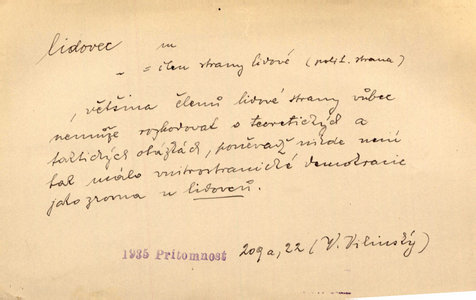 lidovec m
„ = člen strany lidové (polit. strana)
, většina členů lidové strany vůbec
nemůže rozhodovat o teoretických a
taktických otázkách, poněvadž nikde není
tak málo vnitrostranické demokracie
jako zrovna u lidovců.
1935 Prítomnost 209a, 22 (V. Vilinský)